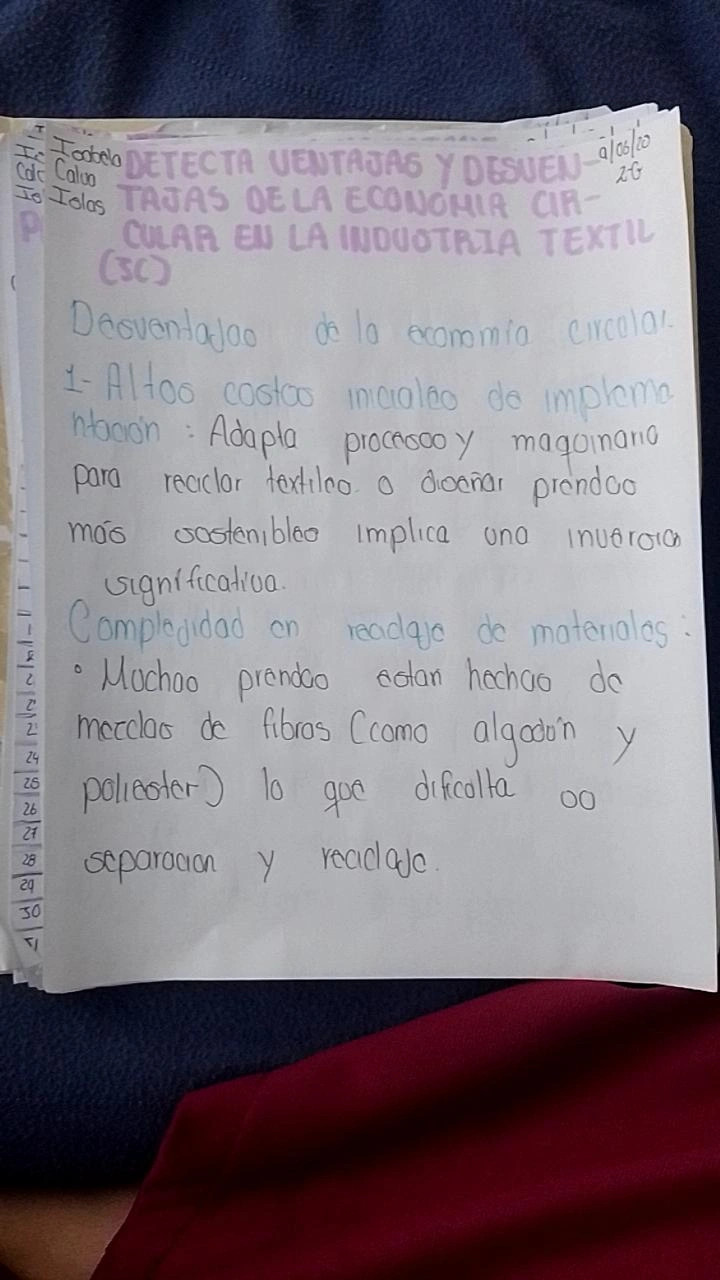 Isabela
Calvo
Islas
9/06/20
2-G
DETECTA VENTAJAS Y DESVEN-
TAJAS DE LA ECONOMIA CIR-
CULAR EN LA INDUSTRIA TEXTIL
(SC)
Desventajas de la economía circular.
1- Altos costos iniciales de impleme
ntación : Adapta procesos y maquinaria
para reciclar textiles o diseñar prendas
más sostenibles implica una inversion
significativa.
Complejidad en reciclaje de materiales :
° Muchas prendas estan hechas de
mezclas de fibras (como algodón y
poliester) lo que dificulta su
separacion y reciclaje.
24
25
26
27
28
29
30